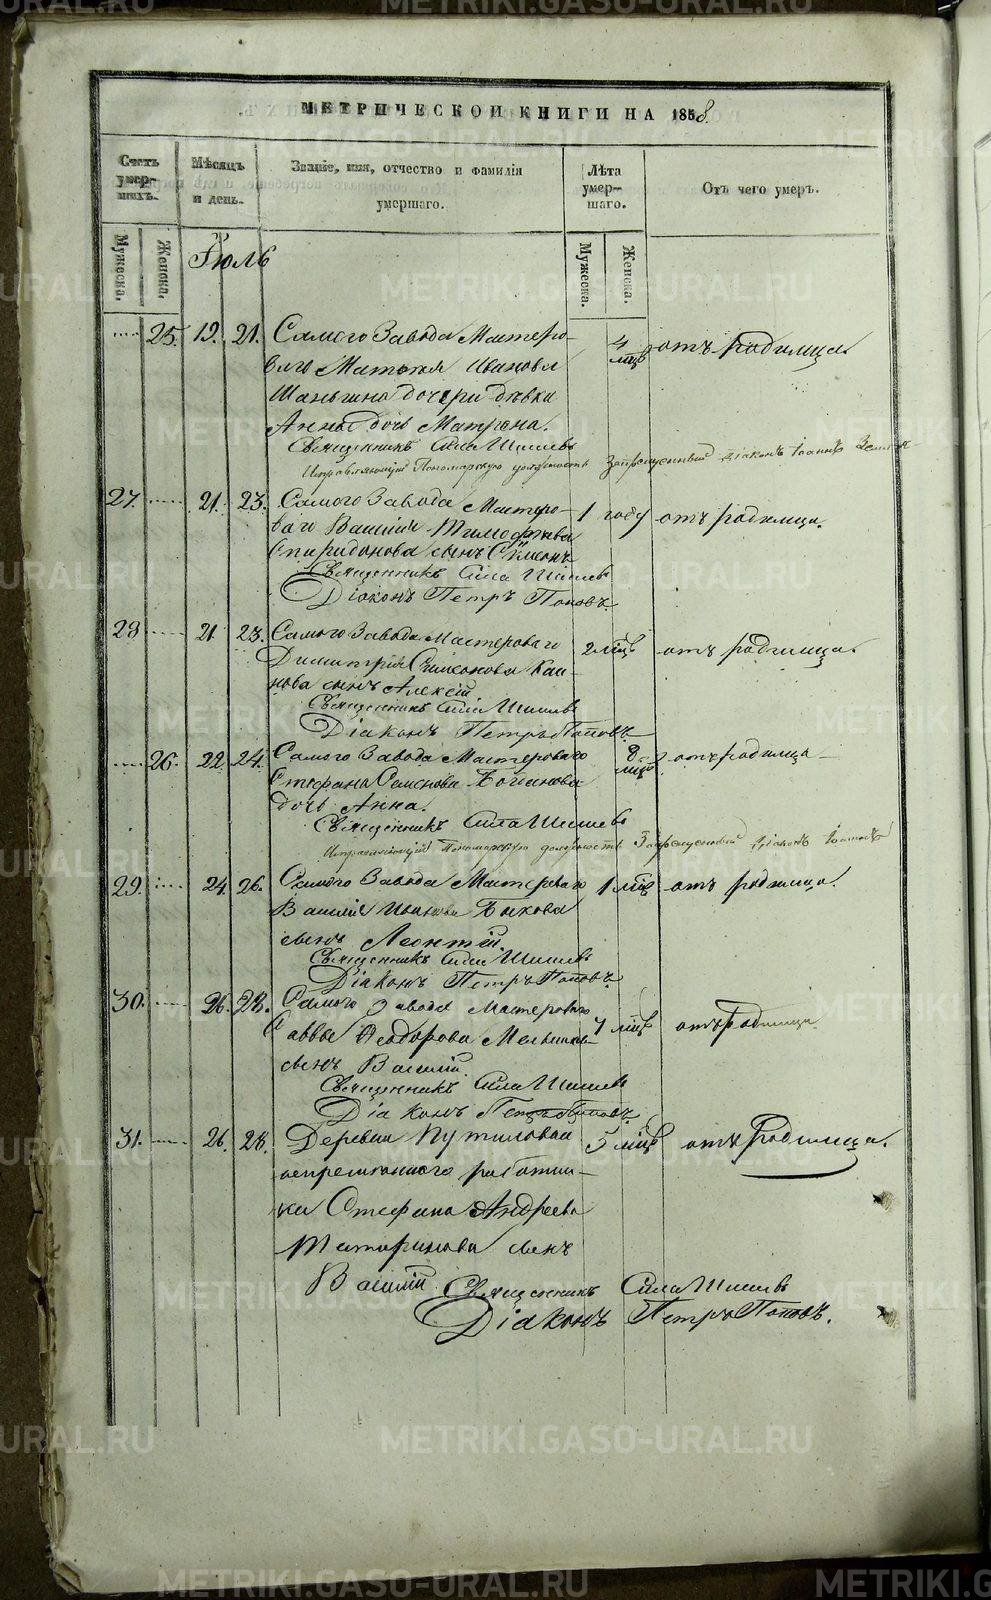 МЕТРИЧЕСКОЙ КНИГИ НА 1858.
Счетъ умер-шихъ.
Мѣсяцъ и день.
Званіе, имя, отчество и фамилія умершаго.
Лѣта умер-шаго.
Отъ чего умеръ.
Мужеска.
Женска.
Мужеска.
Женска.
Іюль
25. 19. 21. Самого Завода Мастеро- 4 мцъ отъ родимца.
ваго Иванова
Шаньгина дочери дѣвки
Анны дочь Матрона.
Священникъ Сила Шишевъ
Исправляющій Пономарскую должность Запрещенный Діаконъ Іоаннъ
27. 21. 23. Самого Завода Мастеро- 1 году отъ родимца.
ваго Василія Тимофѣева
Спиридонова сынъ Сѵмеонъ
Священникъ Сила Шишевъ
Діаконъ Петръ Поповъ.
28 21 23. Самого Завода Мастероваго 2 мцъ отъ родимца.
Димитрія Симеонова
нова сынъ Алексій.
Священникъ Сила Шишевъ
Діаконъ Петръ Поповъ.
26. 22. 24. Самого Завода Мастероваго 8 мцъ отъ родимца
Стефана Семенова
дочь Анна.
Священникъ Сила Шишевъ
Исправляющій Пономарскую должность Запрещенный Діаконъ Іоаннъ
29. 24. 26. Самого Завода Мастероваго 1 мцъ отъ родимца.
Василія Иванова Быкова
сынъ Леонтій.
Священникъ Сила Шишевъ
Діаконъ Петръ Поповъ.
30. 26. 28. Самого Завода Мастероваго
Саввы Ѳеодорова 7 мцъ отъ родимца.
сынъ Василій.
Священникъ Сила Шишевъ
Діаконъ Петръ Поповъ.
31. 26. 28. Деревни Путиловой 5 мцъ отъ Родимца.
непремѣннаго работни-
ка Стефана Андреева
Татаринова сынъ
Василій. Священникъ Сила Шишевъ
Діаконъ Петръ Поповъ.
METRIKI.GASO-URAL.RU